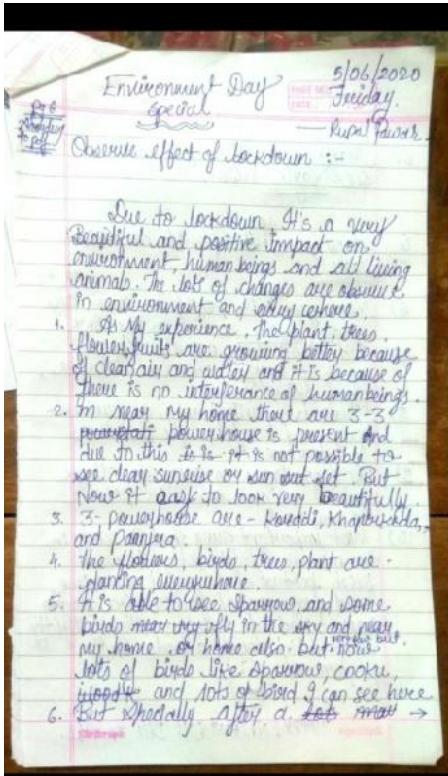 5/06/2020
Environment Day
Friday.
Special
Rupal Pawar
Observe effect of lockdown :-
Due to lockdown It's a very
Beautiful and positive impact on
environtment, human beings and all living
animals. The lots of changes are observe
in environment and every where.
1. As My experience. The plant, trees,
flower, fruits are growing better because
of clean air and water and it is because of
there is no interferance of human beings.
2. In near my home there are 3-3
power house is present and
due to this it is not possible to
see clear sunrise or sun set. But
Now it to look very beautifully.
3. 3-powerhouse are - Koradi, Khaperkheda,
and
4. The flowers, birds, trees, plant are -
dancing everywhere.
5. It is able to see sparrow, and some
birds fly in the sky and near
my home or home also. but now
lots of birds like sparrow, cooku,
and lots of bird I can see here
6. But Specially after a →